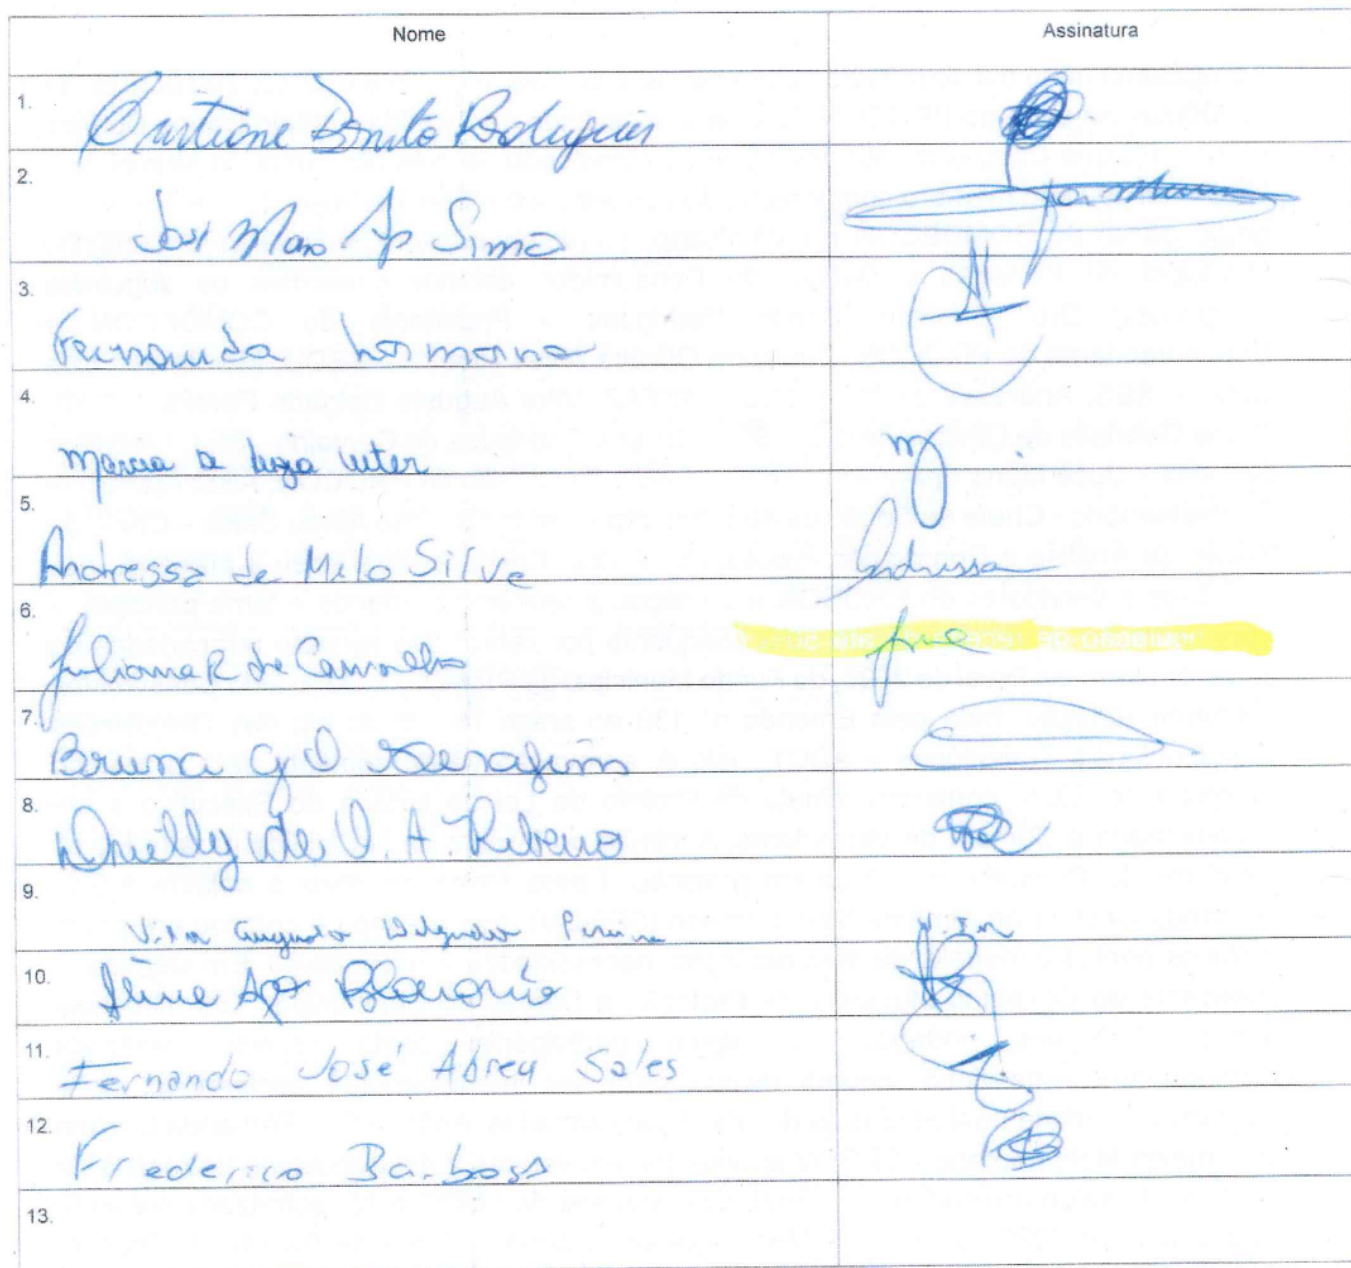 Nome Assinatura
1. Cristiane Bonito Rodrigues
2. José Mario Ap Simão
3. Fernanda
4. Marcia de
5. Andressa de Melo Silva Andressa
6. Juliana R de Carvalho
7. Bruna Gil Serafim
8. de O. A Ribeiro
9. Vitor Augusto Delgado Pereira Vitor
10. Apª
11. Fernando José Abreu Sales
12. Frederico Barbosa
13.